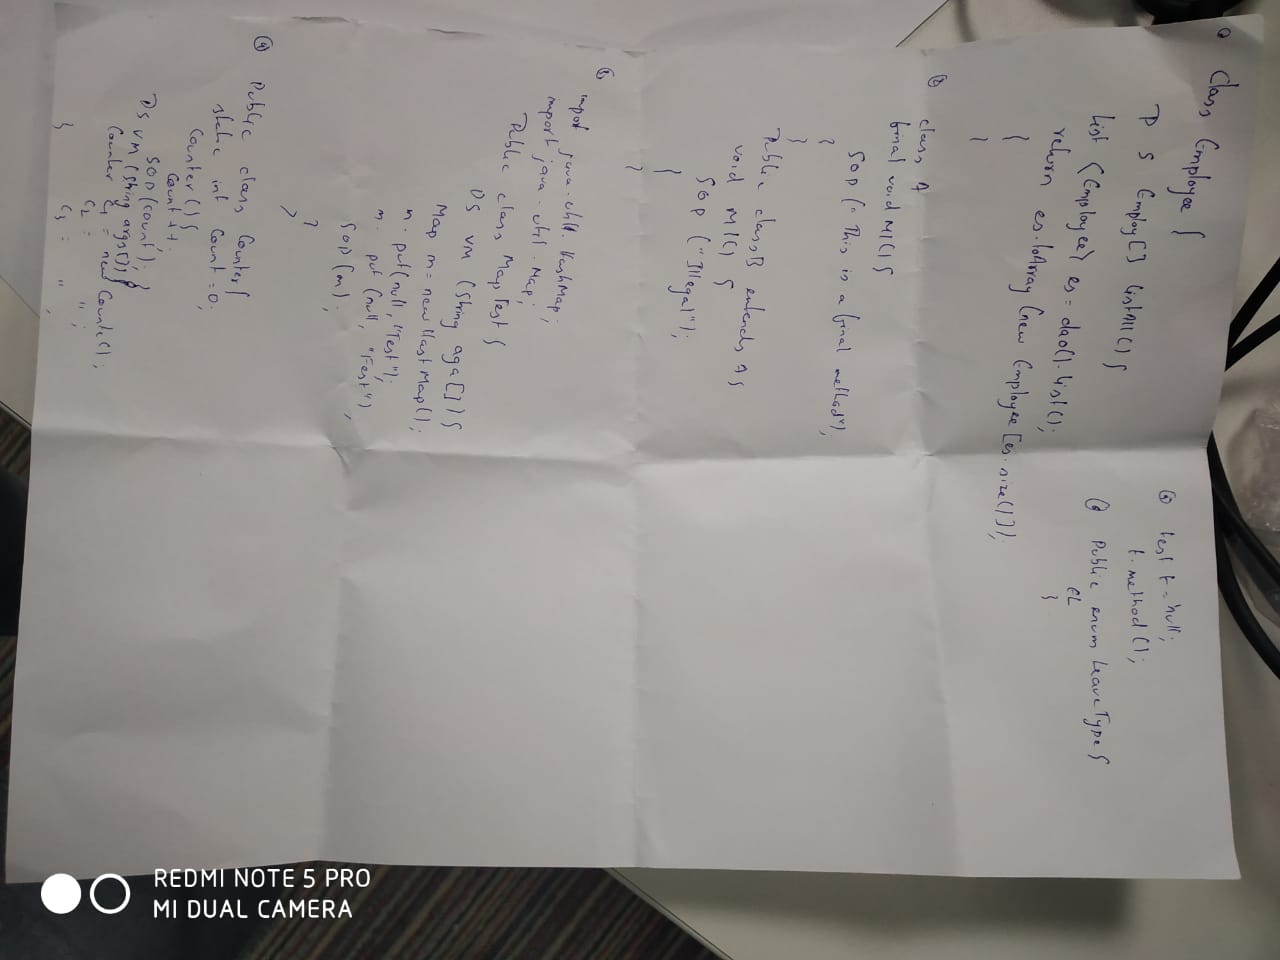 Class Employee {
P S Employ[] listAll() {
List <Employee> es = dao().list();
return es.toArray(new Employee[es.size()]);
}
}
class A
final void M1() {
SOP("This is a final method");
}
}
Public class B extends A {
void M1() {
SOP("Illegal");
}
}
import java.util.HashMap;
import java.util.Map;
Public class MapTest {
PS VM (String aga[]) {
Map m = new HastMap();
m.put(null, "Test");
m.put(null, "Fest");
SOP(m);
}
}
④ Public class Counter {
static int count = 0;
Counter() {
Count++.
SOP(count);
}
PS VM (String args[]) {
Counter C1 = new Counte();
C2 = " ;
C3 = " " ;
}
⑤ test t = null;
t.method();
Public enum LeaveType {
EL
}
REDMI NOTE 5 PRO
MI DUAL CAMERA